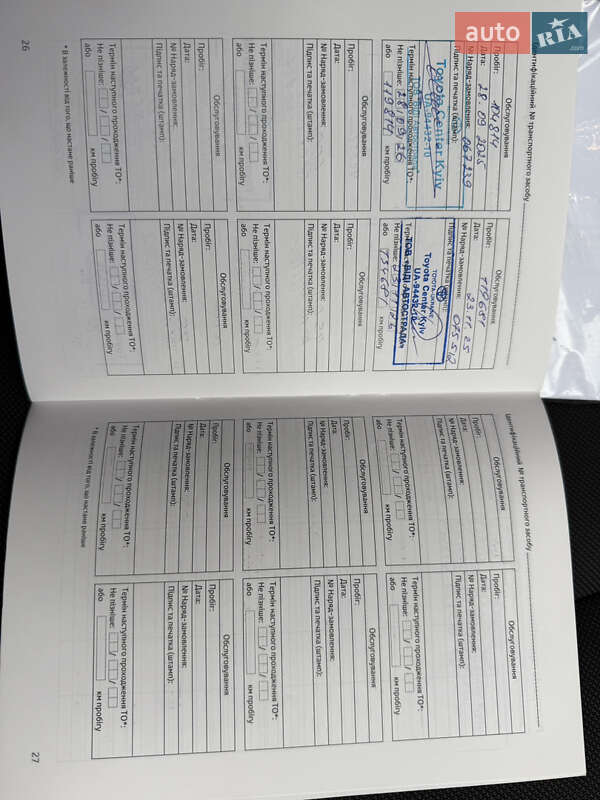 auto RIA .com
Ідентифікаційний № транспортного засобу
Обслуговування
Пробіг: 104874
Дата: 28 09 2025
№ Наряд-замовлення: 067239
Підпис та печатка (штамп):
Toyota Center Kyiv
UA-94432-10
Термін наступного проходження ТО*:
Не пізніше: 28/09/26
або 119874 км пробігу
Обслуговування
Пробіг:
Дата: 23.11.25
№ Наряд-замовлення: 075512
Підпис та печатка (штамп):
Toyota Center Kyiv
UA-94432-10
ТОВ «ВІДІ АВТОСТРАДА»
Не пізніше:
або км пробігу
Обслуговування
Пробіг:
Дата:
№ Наряд-замовлення:
Підпис та печатка (штамп):
Термін наступного проходження ТО*:
Не пізніше: / /
або км пробігу
Обслуговування
Пробіг:
Дата:
№ Наряд-замовлення:
Підпис та печатка (штамп):
Термін наступного проходження ТО*:
Не пізніше: / /
або км пробігу
Обслуговування
Пробіг:
Дата:
№ Наряд-замовлення:
Підпис та печатка (штамп):
Термін наступного проходження ТО*:
Не пізніше: / /
або км пробігу
Обслуговування
Пробіг:
Дата:
№ Наряд-замовлення:
Підпис та печатка (штамп):
Термін наступного проходження ТО*:
Не пізніше: / /
або км пробігу
* В залежності від того, що настане раніше
26
Ідентифікаційний № транспортного засобу
Обслуговування
Пробіг:
Дата:
№ Наряд-замовлення:
Підпис та печатка (штамп):
Термін наступного проходження ТО*:
Не пізніше: / /
або км пробігу
Обслуговування
Пробіг:
Дата:
№ Наряд-замовлення:
Підпис та печатка (штамп):
Термін наступного проходження ТО*:
Не пізніше: / /
або км пробігу
Обслуговування
Пробіг:
Дата:
№ Наряд-замовлення:
Підпис та печатка (штамп):
Термін наступного проходження ТО*:
Не пізніше: / /
або км пробігу
Обслуговування
Пробіг:
Дата:
№ Наряд-замовлення:
Підпис та печатка (штамп):
Термін наступного проходження ТО*:
Не пізніше: / /
або км пробігу
Обслуговування
Пробіг:
Дата:
№ Наряд-замовлення:
Підпис та печатка (штамп):
Термін наступного проходження ТО*:
Не пізніше: / /
або км пробігу
Обслуговування
Пробіг:
Дата:
№ Наряд-замовлення:
Підпис та печатка (штамп):
Термін наступного проходження ТО*:
Не пізніше: / /
або км пробігу
* В залежності від того, що настане раніше
27